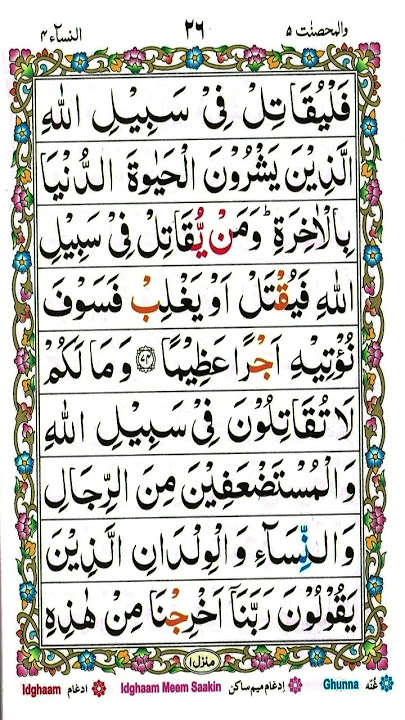 النسآء ٤ ٢٦ والمحصنٰت ٥
فَلْيُقَاتِلْ فِىْ سَبِيْلِ اللّٰهِ
الَّذِيْنَ يَشْرُوْنَ الْحَيٰوةَ الدُّنْيَا
بِالْاٰخِرَةِ ؕ وَمَنْ يُّقَاتِلْ فِىْ سَبِيْلِ
اللّٰهِ فَيُقْتَلْ اَوْ يَغْلِبْ فَسَوْفَ
نُؤْتِيْهِ اَجْرًا عَظِيْمًا ﴿٧٤﴾ وَمَا لَكُمْ
لَا تُقَاتِلُوْنَ فِىْ سَبِيْلِ اللّٰهِ
وَالْمُسْتَضْعَفِيْنَ مِنَ الرِّجَالِ
وَالنِّسَآءِ وَالْوِلْدَانِ الَّذِيْنَ
يَقُوْلُوْنَ رَبَّنَاۤ اَخْرِجْنَا مِنْ هٰذِهِ
منزل ١
Idghaam ادغام Idghaam Meem Saakin ادغام ميم ساكن Ghunna غُنّه